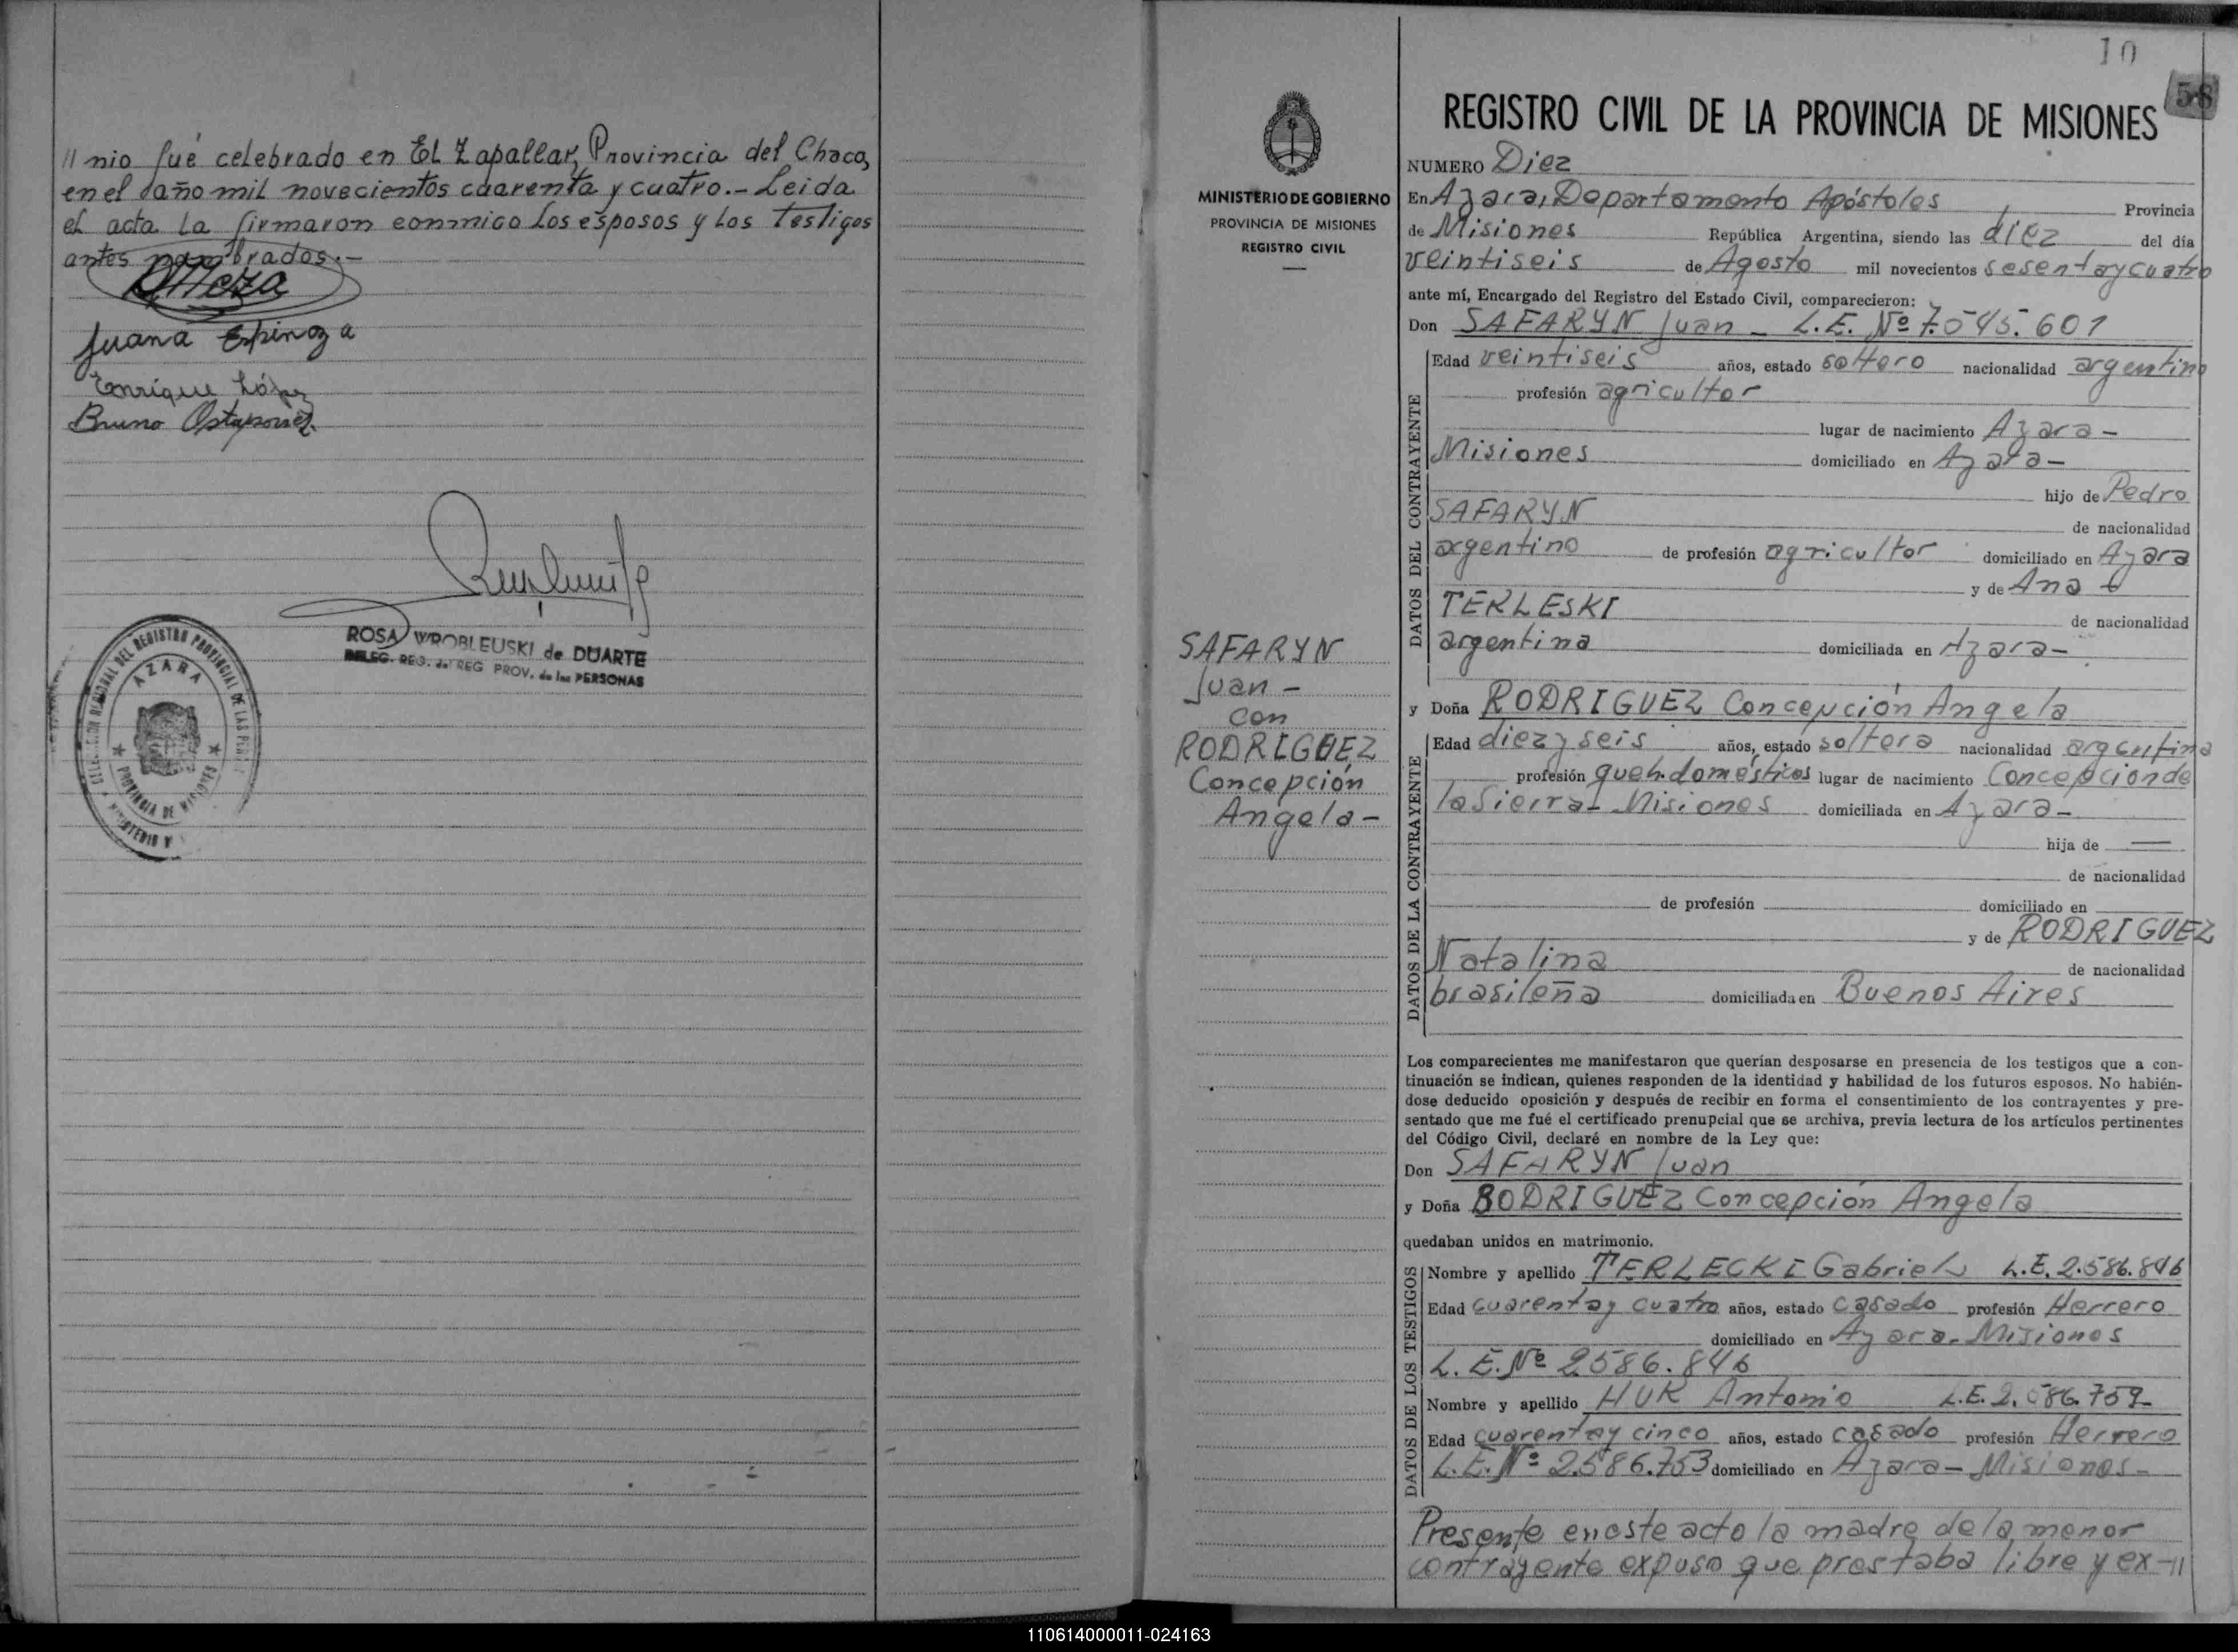 // nio fué celebrado en El Zapallar, Provincia del Chaco,
en el año mil novecientos cuarenta y cuatro.- Leida
el acta la firmaron conmigo los esposos y los testigos
antes nombrados.-
DMeza
Juana Espinoza
Enrique López
Bruno
ROSA WROBLEUSKI de DUARTE
DELEG. REG. del REG PROV. de las PERSONAS
DELEGACION REGIONAL DEL REGISTRO PROVINCIAL DE LAS PERS
AZARA
PROVINCIA DE MISIONES
10
58
MINISTERIO DE GOBIERNO
PROVINCIA DE MISIONES
REGISTRO CIVIL
SAFARYN
Juan -
con
RODRIGUEZ
Concepción
Angela -
REGISTRO CIVIL DE LA PROVINCIA DE MISIONES
NUMERO Diez
En Azara, Departamento Apóstoles Provincia
de Misiones República Argentina, siendo las diez del día
veintiseis de Agosto mil novecientos sesenta y cuatro
ante mí, Encargado del Registro del Estado Civil, comparecieron:
Don SAFARYN Juan - L.E. Nº 7.545.601
DATOS DEL CONTRAYENTE
Edad veintiseis años, estado soltero nacionalidad argentino
profesión agricultor
lugar de nacimiento Azara -
Misiones domiciliado en Azara -
hijo de Pedro
SAFARYN
de nacionalidad
argentino de profesión agricultor domiciliado en Azara
y de Ana
TERLESKI
de nacionalidad
argentina domiciliada en Azara -
y Doña RODRIGUEZ Concepción Angela
DATOS DE LA CONTRAYENTE
Edad diez y seis años, estado soltera nacionalidad argentina
profesión queh. domésticos lugar de nacimiento Concepción de
la Sierra - Misiones domiciliada en Azara -
hija de —
de nacionalidad
de profesión domiciliado en
y de RODRIGUEZ
Natalina
de nacionalidad
brasileña domiciliada en Buenos Aires
Los comparecientes me manifestaron que querían desposarse en presencia de los testigos que a con-
tinuación se indican, quienes responden de la identidad y habilidad de los futuros esposos. No habién-
dose deducido oposición y después de recibir en forma el consentimiento de los contrayentes y pre-
sentado que me fué el certificado prenupcial que se archiva, previa lectura de los artículos pertinentes
del Código Civil, declaré en nombre de la Ley que:
Don SAFARYN Juan
y Doña RODRIGUEZ Concepción Angela
quedaban unidos en matrimonio.
DATOS DE LOS TESTIGOS
Nombre y apellido TERLECKI Gabriel L.E. 2.586.846
Edad cuarenta y cuatro años, estado casado profesión Herrero
domiciliado en Azara - Misiones
L.E. Nº 2.586.846
Nombre y apellido HUK Antonio L.E. 2.586.759
Edad cuarenta y cinco años, estado casado profesión Herrero
L.E. Nº 2.586.753 domiciliado en Azara - Misiones -
Presente en este acto la madre de la menor
contrayente expuso que prestaba libre y ex-//
110614000011-024163